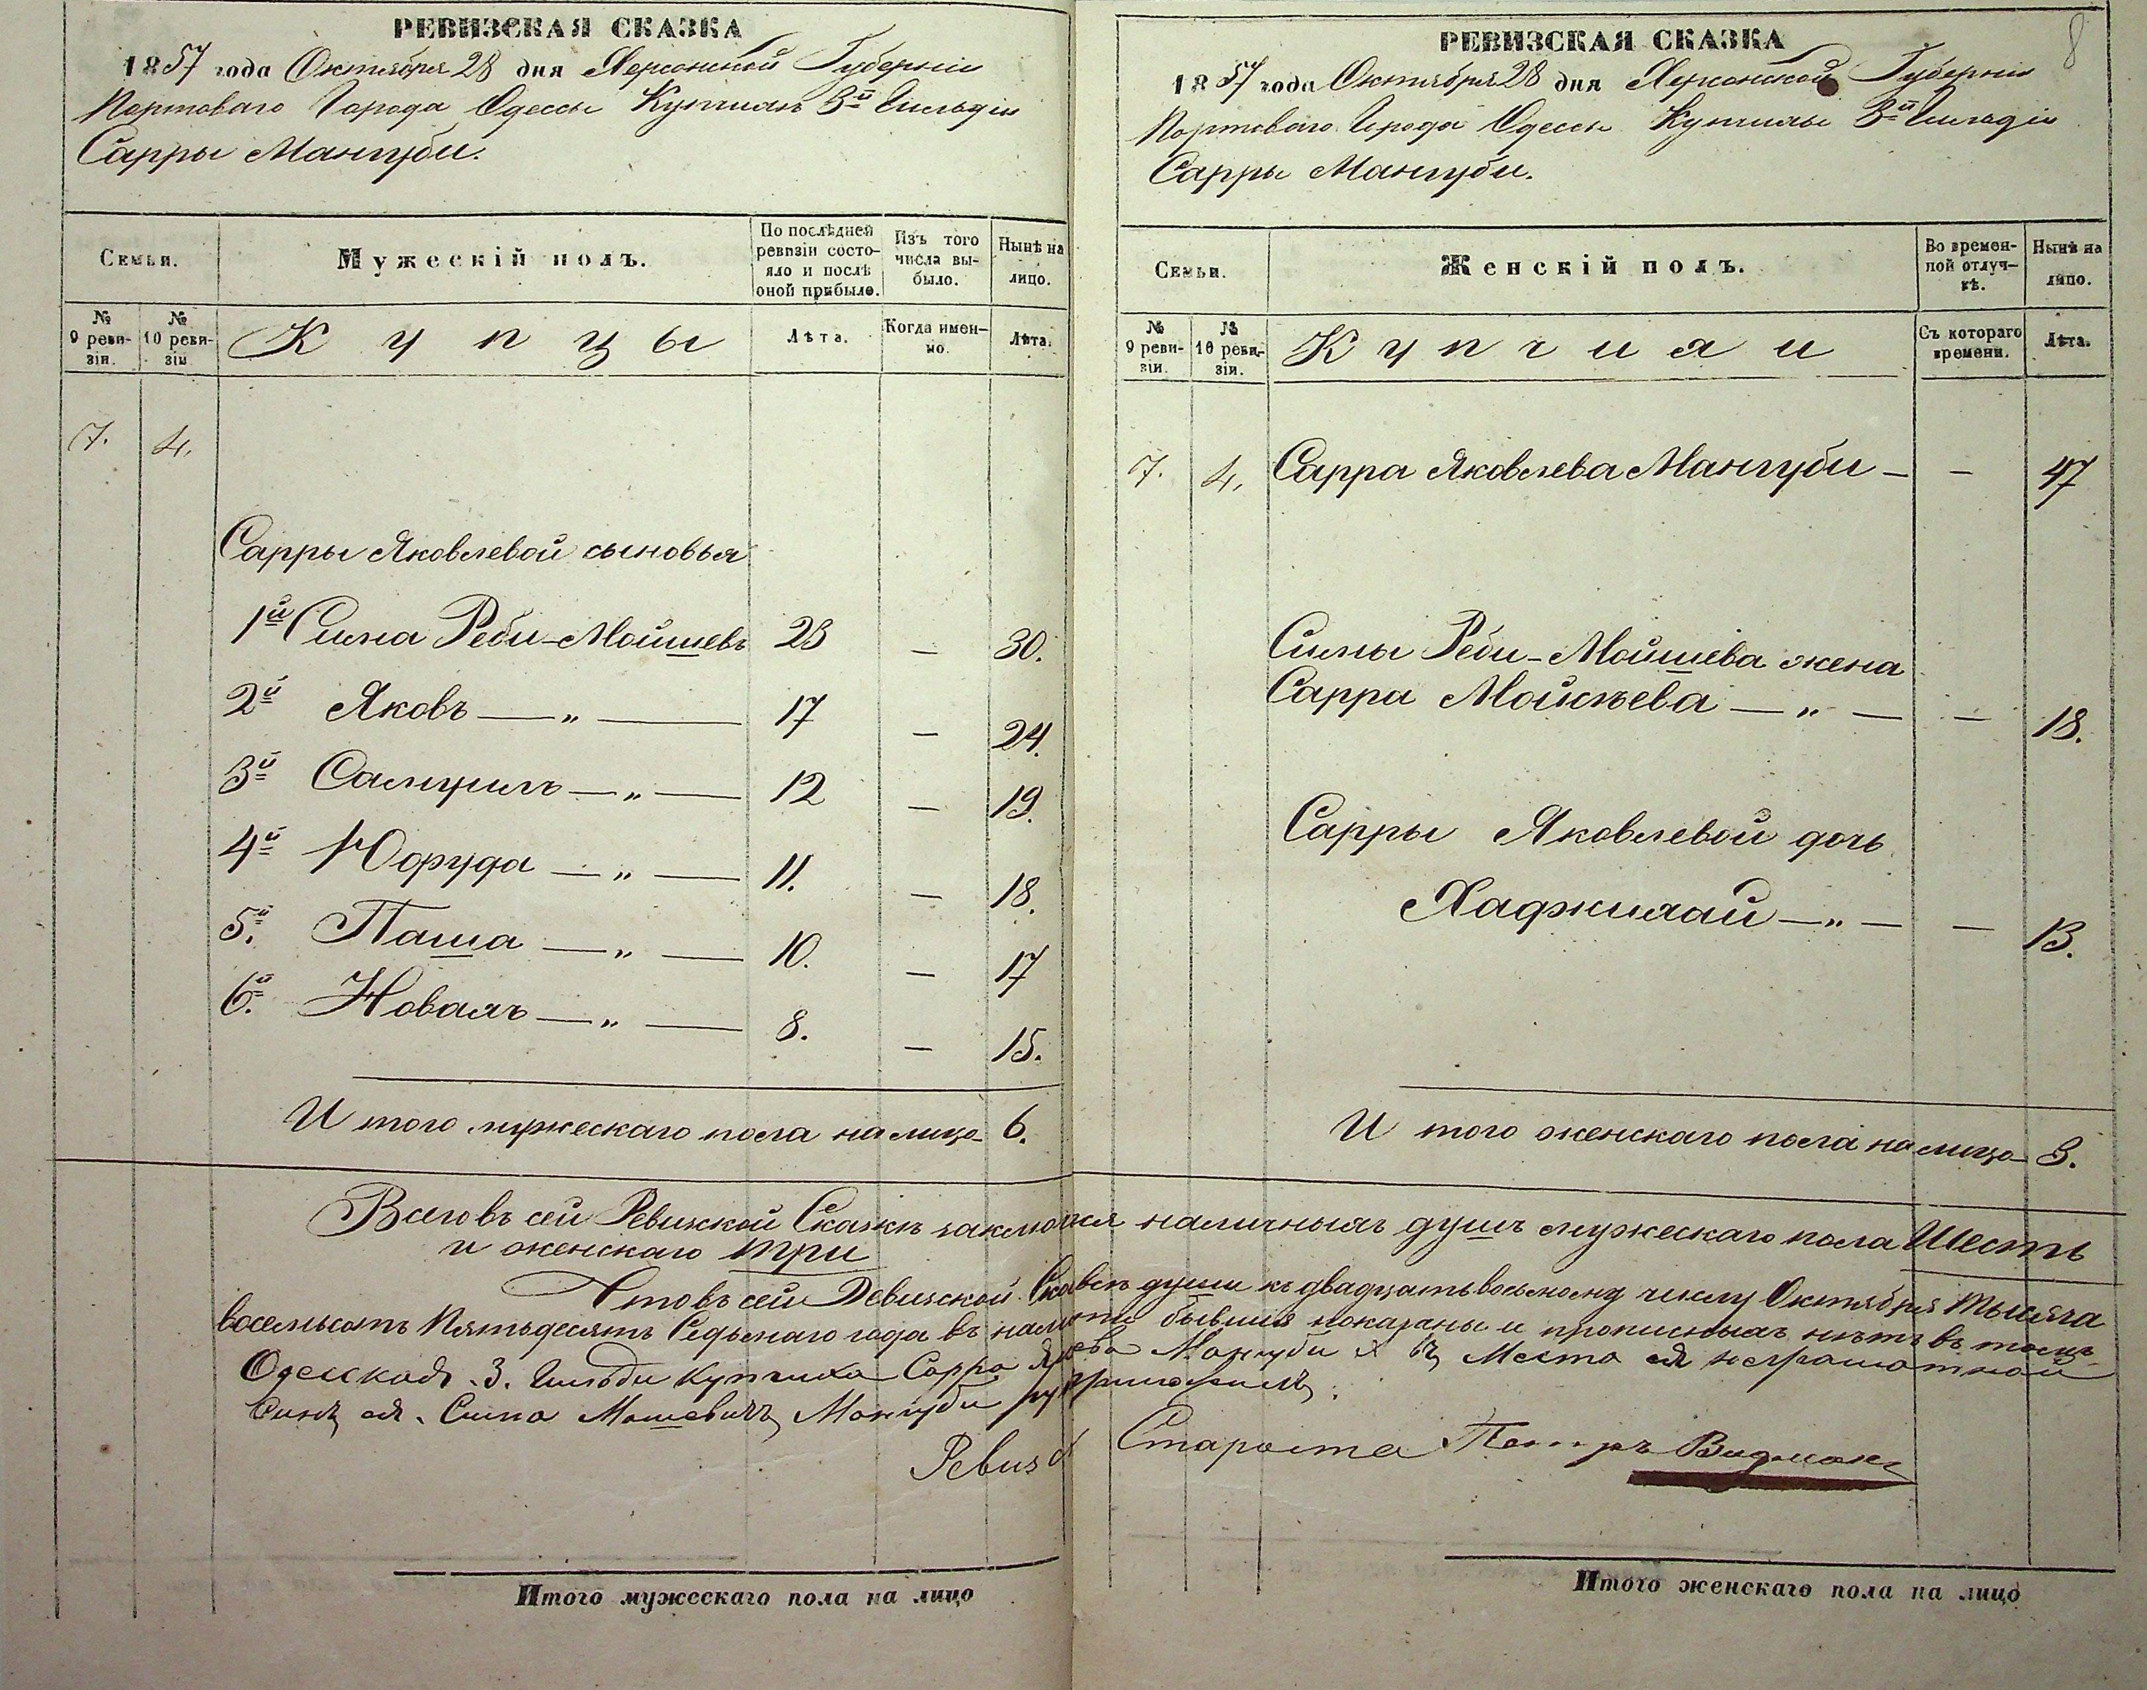 РЕВИЗСКАЯ СКАЗКА
1857 года Октября 28 дня Херсонской Губерніи
Портоваго Города Одессы Купчихи 3й Гильдіи
Сарры Мангуби.
Семьи.
Мужескій полъ.
По послѣдней ревизіи состояло и послѣ оной прибыло.
Изъ того числа выбыло.
Нынѣ на лицо.
№ 9 ревизіи.
№ 10 ревизіи
Купцы
Лѣта.
Когда именно.
Лѣта.
7. 4.
Сарры Яковлевой сыновья
1й Сима Реби-Мойшевъ 23 — 30.
2й Яковъ — „ — 17 — 24.
3й Самуилъ — „ — 12 — 19.
4й Юфуда — „ — 11. — 18.
5й Паша — „ — 10. — 17
6й Новахъ — „ — 8. — 15.
И того мужескаго пола налицо 6.
РЕВИЗСКАЯ СКАЗКА
8
1857 года Октября 28 дня Херсонской Губерніи
Портоваго Города Одессы Купчихи 3й Гильдіи
Сарры Мангуби.
Семьи.
Женскій полъ.
Во временной отлучкѣ.
Нынѣ на лицо.
№ 9 ревизіи.
№ 10 ревизіи.
Купчихи
Съ котораго времени.
Лѣта.
7. 4. Сарра Яковлева Мангуби — — 47
Симы Реби-Мойшева жена
Сарра Мойсѣева — „ — — 18.
Сарры Яковлевой дочь
Хаджикай — „ — — 13.
И того женскаго пола налицо 3.
Всего въ сей Ревизской Сказкѣ наличныхъ душъ мужескаго пола Шесть
и женскаго три
Что въ сей Ревизской Сказкѣ души къ двадцать восьмому числу Октября тысяча
восемьсотъ Пятьдесятъ Седьмаго года въ налично бывшія показаны и прописныхъ нѣтъ въ томъ
Одесская 3. Гильди Купчиха Сарра Мангуби а вместо ея неграмотной
Сынъ ея Сима Мошевичъ Мангуби руку приложилъ.
Ревизс. Староста Петръ Видман
Итого мужескаго пола на лицо
Итого женскаго пола на лицо